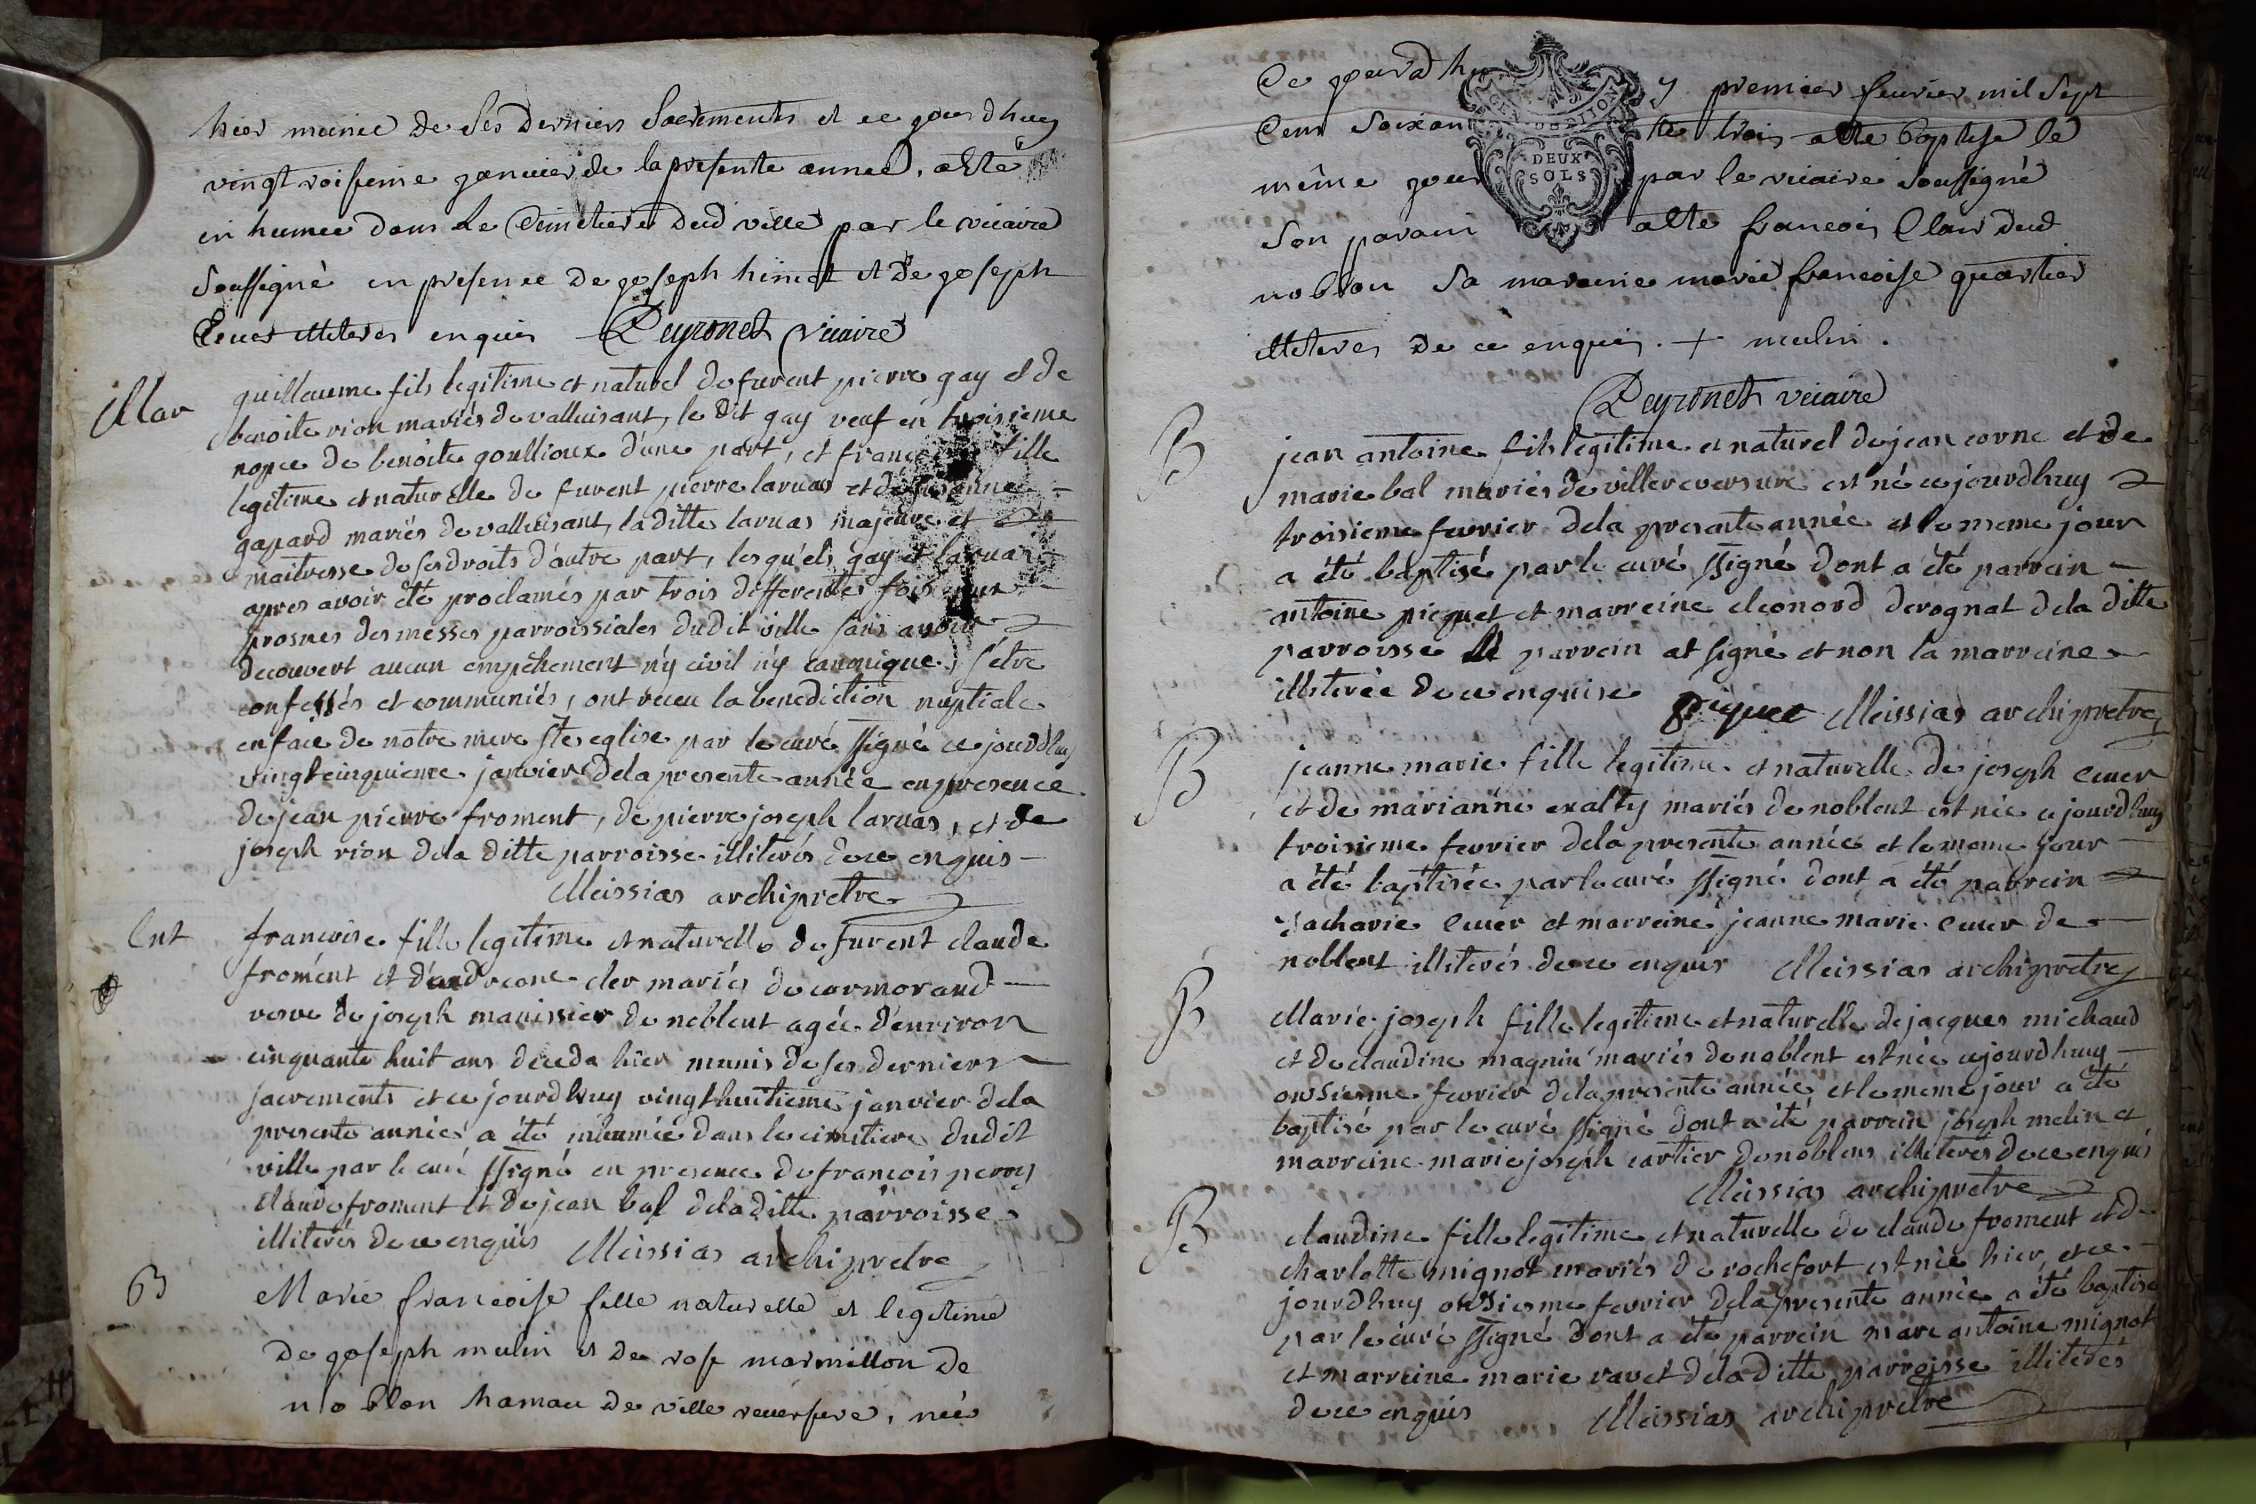 hier munie de Ses Derniers Sacrements et ce jour d huy
vingt troisieme janvier de la presente année, a ete
in humée dans Le Cimetiere Dud ville par le vicaire
Soussigné en presence De joseph himet et De joseph
Ceuer illiteres enquis Peyronet vicaire
Mar
guillaume fils legitime et naturel de furent pierre gay et de
benoite rion mariés de valluisant, le dit gay veuf en troisieme
nopce de benoite goullioux d'une part, et fille
legitime et naturelle de furent pierre laruas et de
gapard mariés de valluisant, laditte laruas majeure et
maitresse de ses droits d'autre part, lesquels gay et laruas
apres avoir été proclamés par trois differentes fois
prosnes des messes parroissiales dudit ville sans avoir
decouvert aucun empêchement n'y civil n'y canonique, s'etre
confessés et communiés, ont receu la benediction nuptiale
en face de notre mere ste eglise par le curé ssigné ce jourdhuy
vingt cinquieme janvier dela presente année en presence
de jean pierre froment, de pierre joseph laruas, et de
joseph rion dela ditte parroisse illiterés de ce enquis
Meissias archipretre
Ent
francoise fille legitime et naturelle de furent claude
froment et d'andreane cler mariés de cormoraud
veuve de joseph manissier de noblent agée d'environ
cinquante huit ans deceda hier munis de ses derniers
sacrements et ce jourdhuy vingt huitieme janvier dela
presente année a été inhumée dans le cimetiere dudit
ville par le curé ssigné en presence de francois perry
claude froment et de jean bal dela ditte parroisse
illiterés de ce enquis Meissias archipretre
B
Marie francoise fille naturelle et legitime
De joseph mulin et De rose marmillon de
noblon hamau De ville reuersure, née
Ce jourd hu y premier feurier mil Sept
Cent Soixan te trois a ete baptise le
même jour par le vicaire Soussigné
Son parain a ete francois Clair dud
noblon Sa maraine marie francoise quartier
illiteres De ce enquis. + mulin.
Peyronet vicaire
DEUX
SOLS
B
jean antoine fils legitime et naturel de jean corne et de
marie bal mariés de villereversure est né ce jourdhuy
troisieme fevrier dela presente année et le meme jour
a été baptisé par le curé ssigné dont a été parrein
antoine piquet et marreine eleonord derognat dela ditte
parroisse le parrein at signé et non la marreine
illiterée de ce enquise piquet Meissias archipretre
B
jeanne marie fille legitime et naturelle de joseph ceuer
et de marianne exalty mariés de noblent est née ce jourdhuy
troisieme fevrier dela presente année et le meme jour
a été baptisée par le curé ssigné dont a été parrein
Zacharie ceuer et marreine jeanne marie ceuer de
noblent illiterés de ce enquis Meissias archipretre
B
Marie joseph fille legitime et naturelle de jacques michaud
et de claudine magnin mariés de noblent est née ce jourdhuy
onzieme fevrier dela presente année et le meme jour a été
baptisé par le curé ssigné dont a été parrein joseph melin et
marreine marie joseph cartier de noblens illiterés de ce enquis
Meissias archipretre
B
claudine fille legitime et naturelle de claude froment et de
charlotte mignot mariés de rochefort est née hier, et ce
jourdhuy onzieme fevrier dela presente année a été baptisé
par le curé ssigné dont a été parrein marc antoine mignot
et marreine marie ravet dela ditte parroisse illiterés
de ce enquis Meissias archipretre